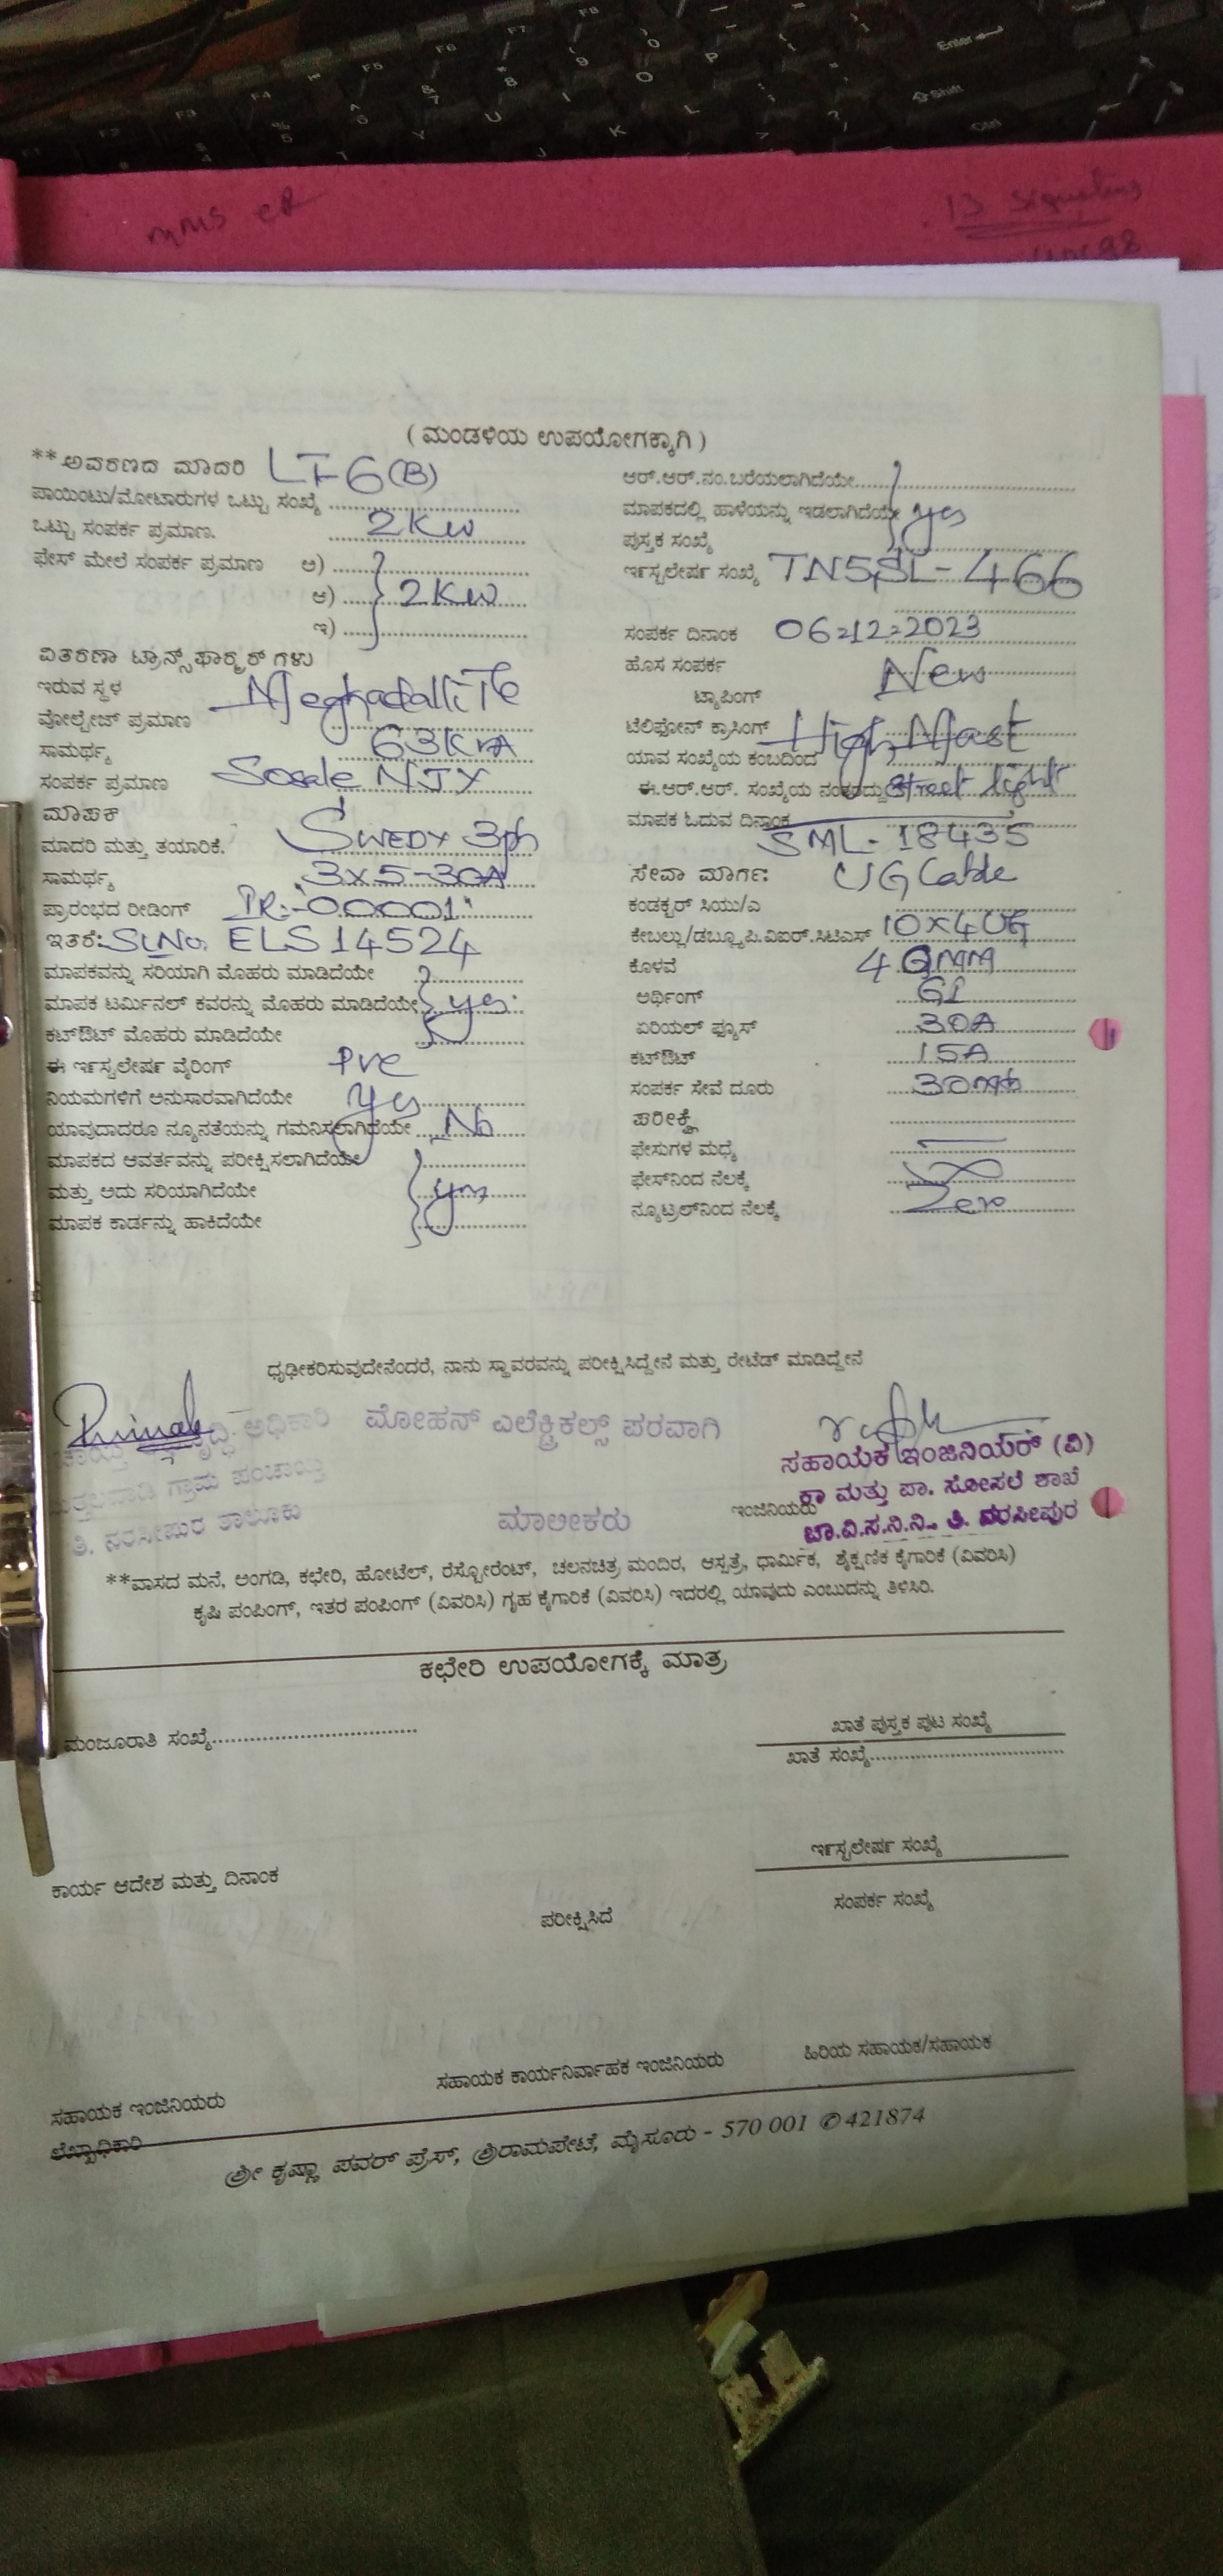 ( ಮಂಡಳಿಯ ಉಪಯೋಗಕ್ಕಾಗಿ )
**ಅವರಣದ ಮಾದರಿ LT-6(B)
ಪಾಯಿಂಟು/ಮೋಟಾರುಗಳ ಒಟ್ಟು ಸಂಖ್ಯೆ
ಒಟ್ಟು ಸಂಪರ್ಕ ಪ್ರಮಾಣ. 2Kw
ಫೇಸ್ ಮೇಲೆ ಸಂಪರ್ಕ ಪ್ರಮಾಣ ಅ)
ಆ) 2Kw
ಇ)
ವಿತರಣಾ ಟ್ರಾನ್ಸ್‌ಫಾರ್ಮರ್ ಗಳು
ಇರುವ ಸ್ಥಳ
ವೋಲ್ಟೇಜ್ ಪ್ರಮಾಣ
ಸಾಮರ್ಥ್ಯ 63KVA
ಸಂಪರ್ಕ ಪ್ರಮಾಣ Sosale NJY
ಮಾಪಕ
ಮಾದರಿ ಮತ್ತು ತಯಾರಿಕೆ. 3ph
ಸಾಮರ್ಥ್ಯ 3x5-30A
ಪ್ರಾರಂಭದ ರೀಡಿಂಗ್ IR:-00001
ಇತರೆ: SLNo. ELS14524
ಮಾಪಕವನ್ನು ಸರಿಯಾಗಿ ಮೊಹರು ಮಾಡಿದೆಯೇ
ಮಾಪಕ ಟರ್ಮಿನಲ್ ಕವರನ್ನು ಮೊಹರು ಮಾಡಿದೆಯೇ yes
ಕಟ್‌ಔಟ್ ಮೊಹರು ಮಾಡಿದೆಯೇ
ಈ ಇನ್‌ಸ್ಟಲೇಷನ್ ವೈರಿಂಗ್ Pvc
ನಿಯಮಗಳಿಗೆ ಅನುಸಾರವಾಗಿದೆಯೇ Yes
ಯಾವುದಾದರೂ ನ್ಯೂನತೆಯನ್ನು ಗಮನಿಸಲಾಗಿದೆಯೇ No
ಮಾಪಕದ ಆವರ್ತವನ್ನು ಪರೀಕ್ಷಿಸಲಾಗಿದೆಯೇ
ಮತ್ತು ಅದು ಸರಿಯಾಗಿದೆಯೇ yes
ಮಾಪಕ ಕಾರ್ಡನ್ನು ಹಾಕಿದೆಯೇ
ಆರ್.ಆರ್.ನಂ.ಬರೆಯಲಾಗಿದೆಯೇ
ಮಾಪಕದಲ್ಲಿ ಹಾಳೆಯನ್ನು ಇಡಲಾಗಿದೆಯೇ yes
ಪುಸ್ತಕ ಸಂಖ್ಯೆ
ಇನ್‌ಸ್ಟಲೇಷನ್ ಸಂಖ್ಯೆ TNSSL-466
ಸಂಪರ್ಕ ದಿನಾಂಕ 06-12-2023
ಹೊಸ ಸಂಪರ್ಕ New
ಟ್ಯಾಪಿಂಗ್
ಟೆಲಿಫೋನ್ ಕ್ರಾಸಿಂಗ್ High Mast
ಯಾವ ಸಂಖ್ಯೆಯ ಕಂಬದಿಂದ
ಈ.ಆರ್.ಆರ್. ಸಂಖ್ಯೆಯ Street light
ಮಾಪಕ ಓದುವ ದಿನಾಂಕ SML-18435
ಸೇವಾ ಮಾರ್ಗ: UG Cable
ಕಂಡಕ್ಟರ್ ಸಿಯು/ಎ
ಕೇಬಲ್ಲು/ಡಬ್ಲ್ಯೂ.ಪಿ.ವಿಐರ್.ಸಿಟಿಎಸ್ 10x4 UG
ಕೊಳವೆ
ಅರ್ಥಿಂಗ್ GI
ಏರಿಯಲ್ ಫ್ಯೂಸ್ 30A
ಕಟ್‌ಔಟ್ 15A
ಸಂಪರ್ಕ ಸೇವೆ ದೂರು
ಪರೀಕ್ಷೆ
ಫೇಸುಗಳ ಮಧ್ಯೆ
ಫೇಸ್‌ನಿಂದ ನೆಲಕ್ಕೆ
ನ್ಯೂಟ್ರಲ್‌ನಿಂದ ನೆಲಕ್ಕೆ Zero
ಧೃಢೀಕರಿಸುವುದೇನೆಂದರೆ, ನಾನು ಸ್ಥಾವರವನ್ನು ಪರೀಕ್ಷಿಸಿದ್ದೇನೆ ಮತ್ತು ರೇಟೆಡ್ ಮಾಡಿದ್ದೇನೆ
ಅಧಿಕಾರಿ
ಗ್ರಾಮ ಪಂಚಾಯ್ತಿ
ತಿ. ನರಸೀಪುರ ತಾಲೂಕು
ಮೋಹನ್ ಎಲೆಕ್ಟ್ರಿಕಲ್ಸ್ ಪರವಾಗಿ
ಮಾಲೀಕರು
ಸಹಾಯಕ ಇಂಜಿನಿಯರ್ (ವಿ)
ಕಾ ಮತ್ತು ಪಾ. ಸೋಸಲೆ ಶಾಖೆ
ಇಂಜಿನಿಯರು
ಚಾ.ವಿ.ಸ.ನಿ.ನಿ., ತಿ. ನರಸೀಪುರ
**ವಾಸದ ಮನೆ, ಅಂಗಡಿ, ಕಛೇರಿ, ಹೋಟೆಲ್, ರೆಸ್ಟೋರೆಂಟ್, ಚಲನಚಿತ್ರ ಮಂದಿರ, ಆಸ್ಪತ್ರೆ, ಧಾರ್ಮಿಕ, ಶೈಕ್ಷಣಿಕ ಕೈಗಾರಿಕೆ (ವಿವರಿಸಿ)
ಕೃಷಿ ಪಂಪಿಂಗ್, ಇತರ ಪಂಪಿಂಗ್ (ವಿವರಿಸಿ) ಗೃಹ ಕೈಗಾರಿಕೆ (ವಿವರಿಸಿ) ಇದರಲ್ಲಿ ಯಾವುದು ಎಂಬುದನ್ನು ತಿಳಿಸಿರಿ.
ಕಛೇರಿ ಉಪಯೋಗಕ್ಕೆ ಮಾತ್ರ
ಮಂಜೂರಾತಿ ಸಂಖ್ಯೆ
ಖಾತೆ ಪುಸ್ತಕ ಪುಟ ಸಂಖ್ಯೆ
ಖಾತೆ ಸಂಖ್ಯೆ
ಇನ್‌ಸ್ಟಲೇಷನ್ ಸಂಖ್ಯೆ
ಕಾರ್ಯ ಆದೇಶ ಮತ್ತು ದಿನಾಂಕ
ಸಂಪರ್ಕ ಸಂಖ್ಯೆ
ಪರೀಕ್ಷಿಸಿದೆ
ಸಹಾಯಕ ಇಂಜಿನಿಯರು
ಸಹಾಯಕ ಕಾರ್ಯನಿರ್ವಾಹಕ ಇಂಜಿನಿಯರು
ಹಿರಿಯ ಸಹಾಯಕ/ಸಹಾಯಕ
ಲೆಖ್ಖಾಧಿಕಾರಿ
ಶ್ರೀ ಕೃಷ್ಣಾ ಪವರ್ ಪ್ರೆಸ್, ಶ್ರೀರಾಮಪೇಟೆ, ಮೈಸೂರು - 570 001 ✆ 421874